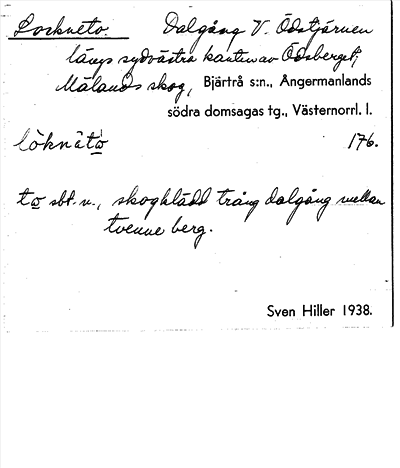 Lockneto. Dalgång V. Ödstjärnen
längs sydvästra kanten av Ödsberget,
Mälands skog, Bjärtrå s:n., Ångermanlands
södra domsagas tg., Västernorrl. l.
löknätω 176.
tω sbt. n., skogklädd trång dalgång mellan
tvenne berg.
Sven Hiller 1938.